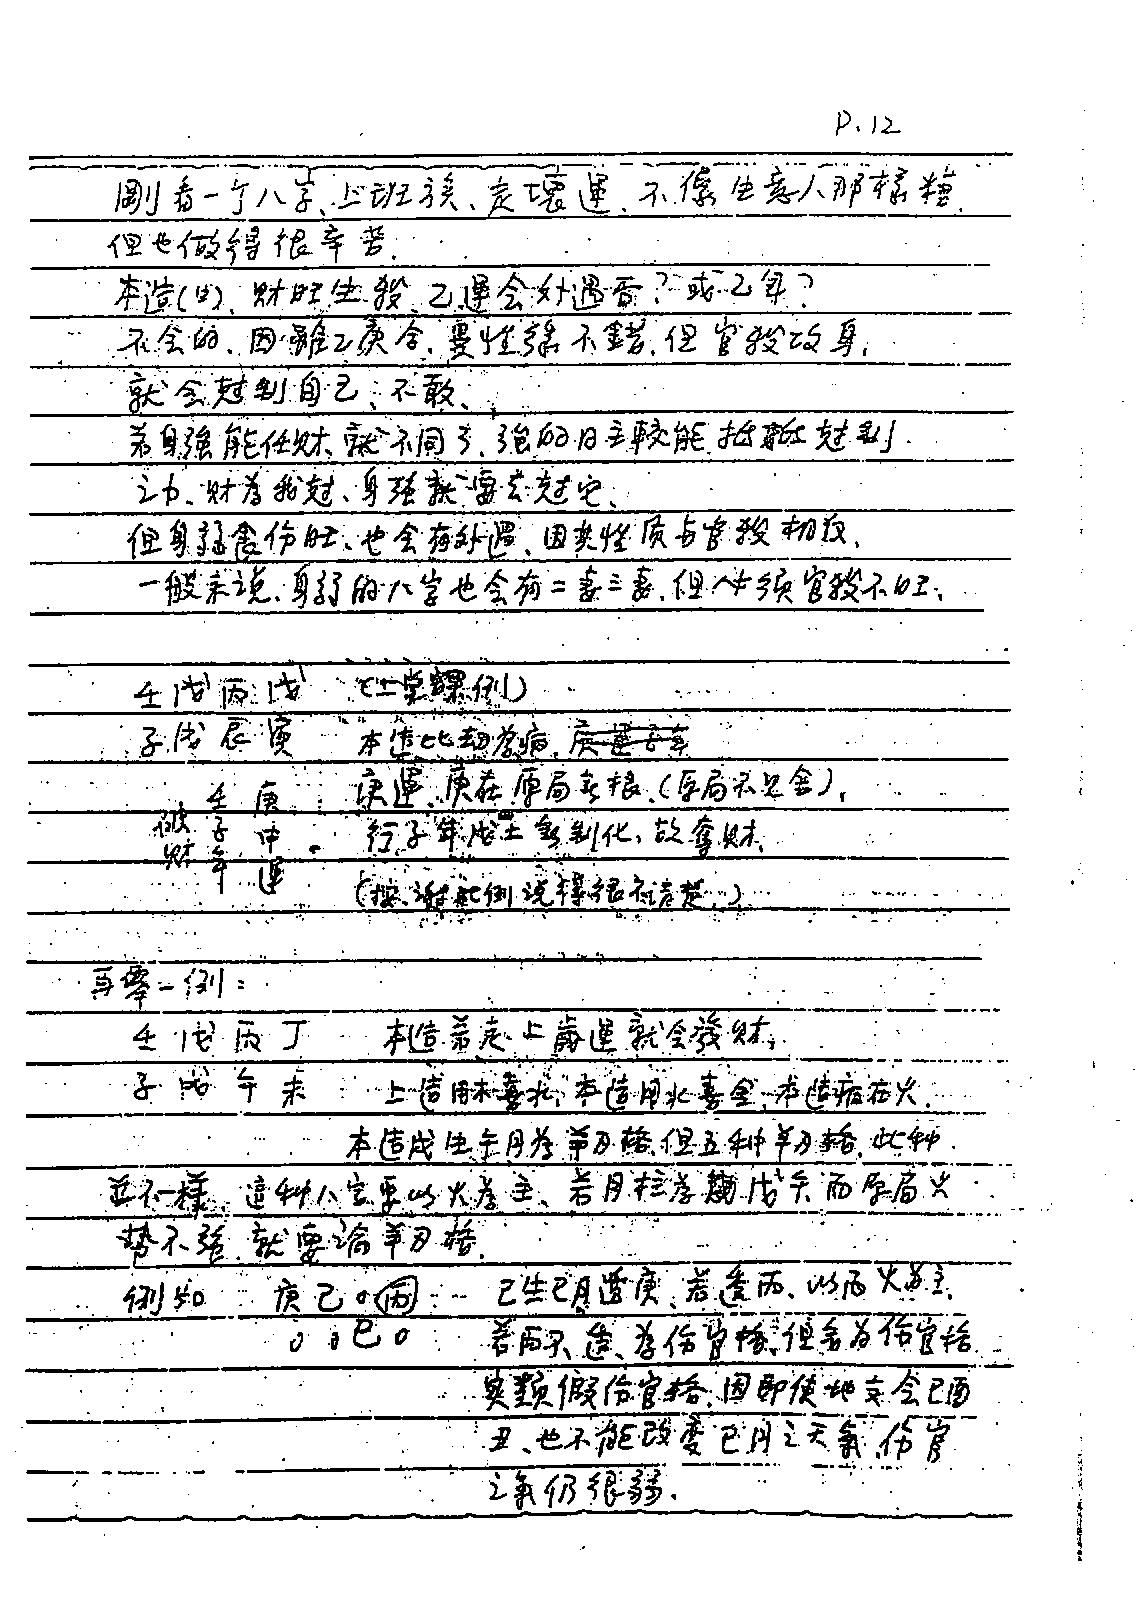 P.12
剛看一个八字、上班族、走壞運、不像生意人那樣糟.
但也做得很辛苦.
本造(甲)、财旺生殺、乙運会外遇否?或乙年?
不会的、因雖乙庚合、異性緣不錯、但官殺攻身、
就会尅到自己、不敢、
若身强能任财、就不同了、强的日主較能抵抗尅剥
之力、财為我尅、身强就要去尅它、
但身弱食伤旺、也会有外遇、因其性质与官殺相反、
一般來说、身弱的八字也会有二妻三妻、但必须官殺不旺、
壬戊丙戊 (上堂課例)
子戌辰寅 本造比劫為病、庚運子年
壬子年 破财 庚申運 庚運、庚在原局無根、(原局不见金)、
行子年戊土無制化、故奪财、
(按、謝此例说得很不清楚、)
再舉一例:
壬戊丙丁 本造若走上歲運就会發财、
子戌午未 上造用木喜水、本造用水喜金、本造病在火.
本造戊生午月為羊刃格、但五种羊刃格、此种
並不一樣、這种八字要以火為主、若月柱為戊午而原局火
势不强、就要論羊刃格.
例如 庚己○丙 己生巳月透庚、若透丙、以丙火為主、
○○巳○ 若丙不透、為伤官格、但名為伤官格
实類假伤官格、因即使地支会巳酉
丑、也不能改变巳月之天氣、伤官
之氣仍很弱.